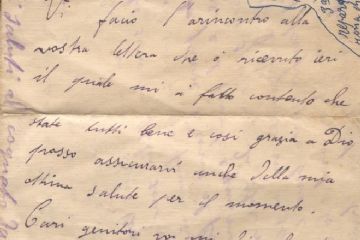 Vi facio l'arincontro alla
vostra lettera che ò ricevuto ieri
il quale mi à fatto contento che
state tutti bene e cosi grazia a Dio
posso assicurarvi anche della mia
ottima salute per il momento.
Cari genitori voi mi
saluti al cognato